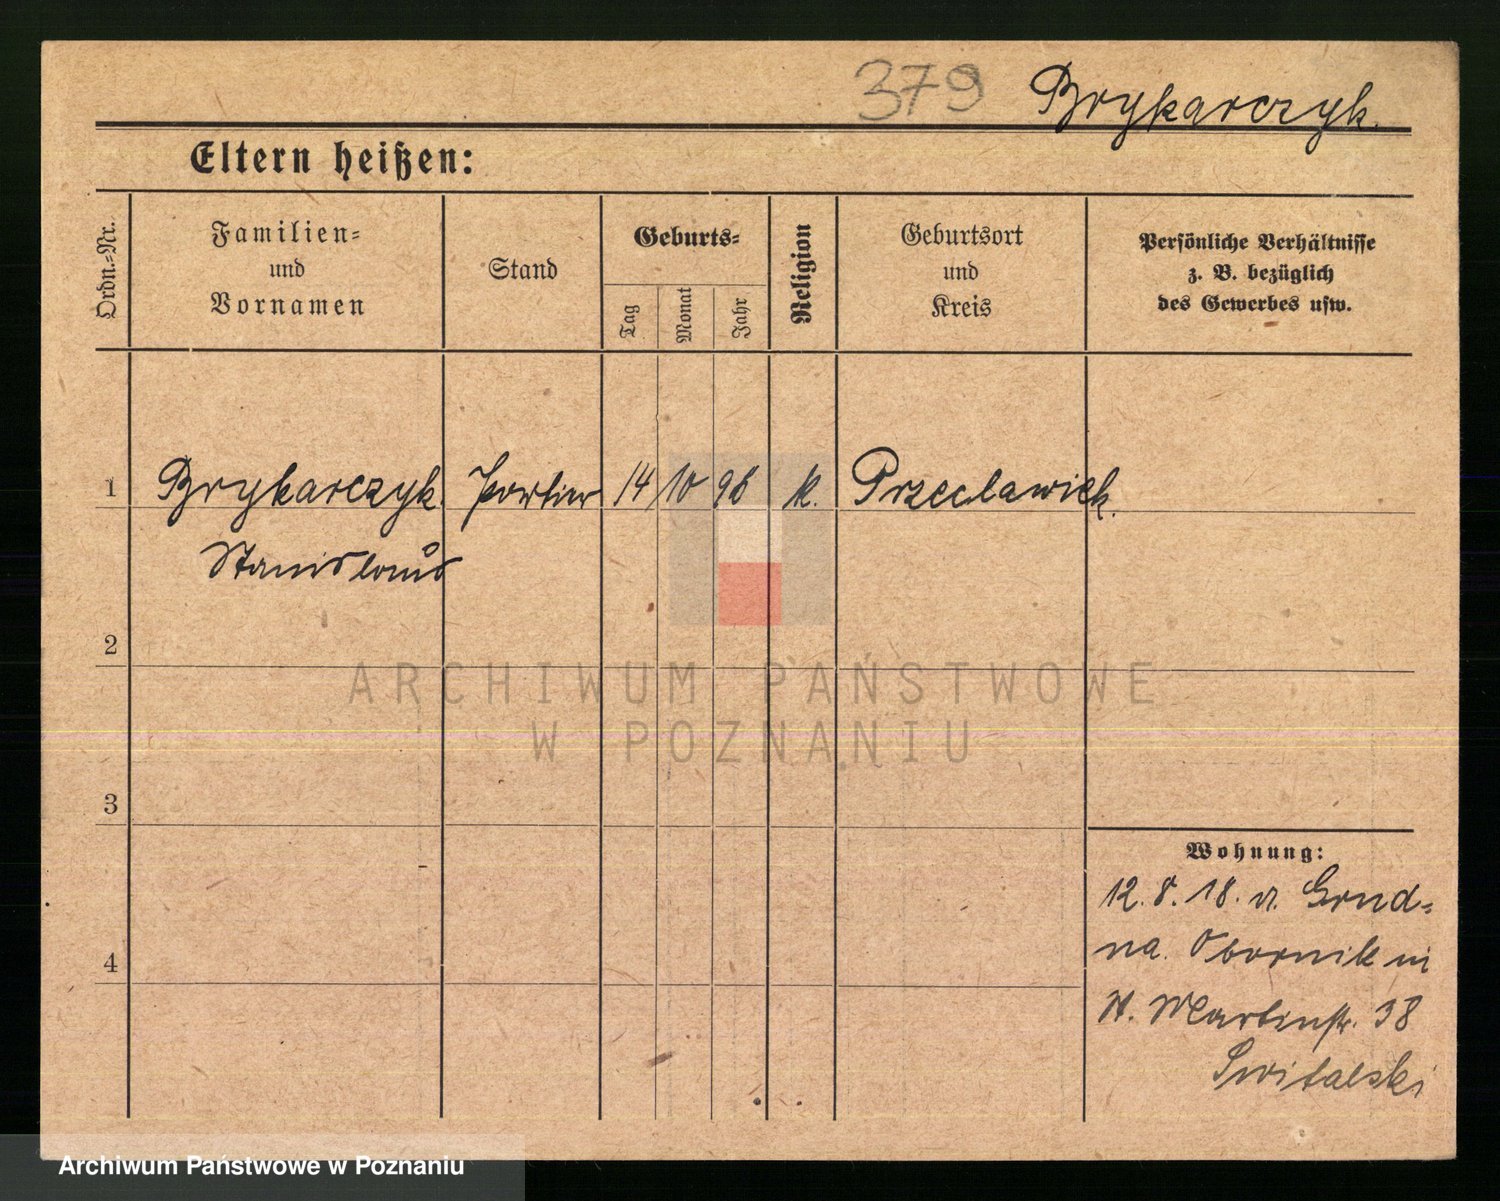 379 Brykarczyk.
Eltern heißen:
Ordn.-Nr.
Familien-
und
Vornamen
Stand
Geburts-
Tag
Monat
Jahr
Religion
Geburtsort
und
Kreis
Persönliche Verhältnisse
z. B. bezüglich
des Gewerbes usw.
1 Brykarczyk. Portier 14 10 96 k. Przeclawiek.
Stanislaus
2
ARCHIWUM PAŃSTWOWE
W POZNANIU
3
Wohnung:
12. 8. 18. v. Grud-
na. Obornik in
St. Martinstr. 38
4
Switalski
Archiwum Państwowe w Poznaniu